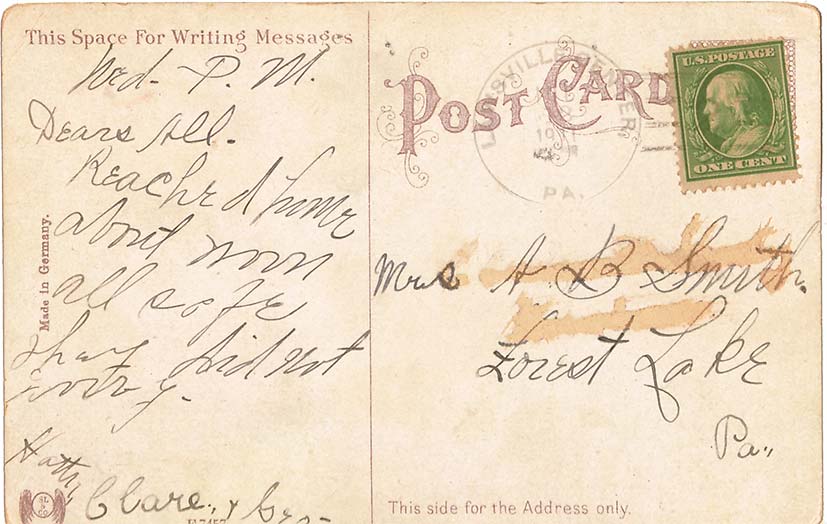 This Space For Writing Messages
Wed- P. M.
Dears All.
Reached home
about noon
all safe
they did not
worry.
Hatty,
Clare., & Geo-
Made in Germany.
POST CARD
CENTER
19
PA.
U.S. POSTAGE
ONE CENT
Mrs A B Smith.
Forest Lake
Pa.,
This side for the Address only.